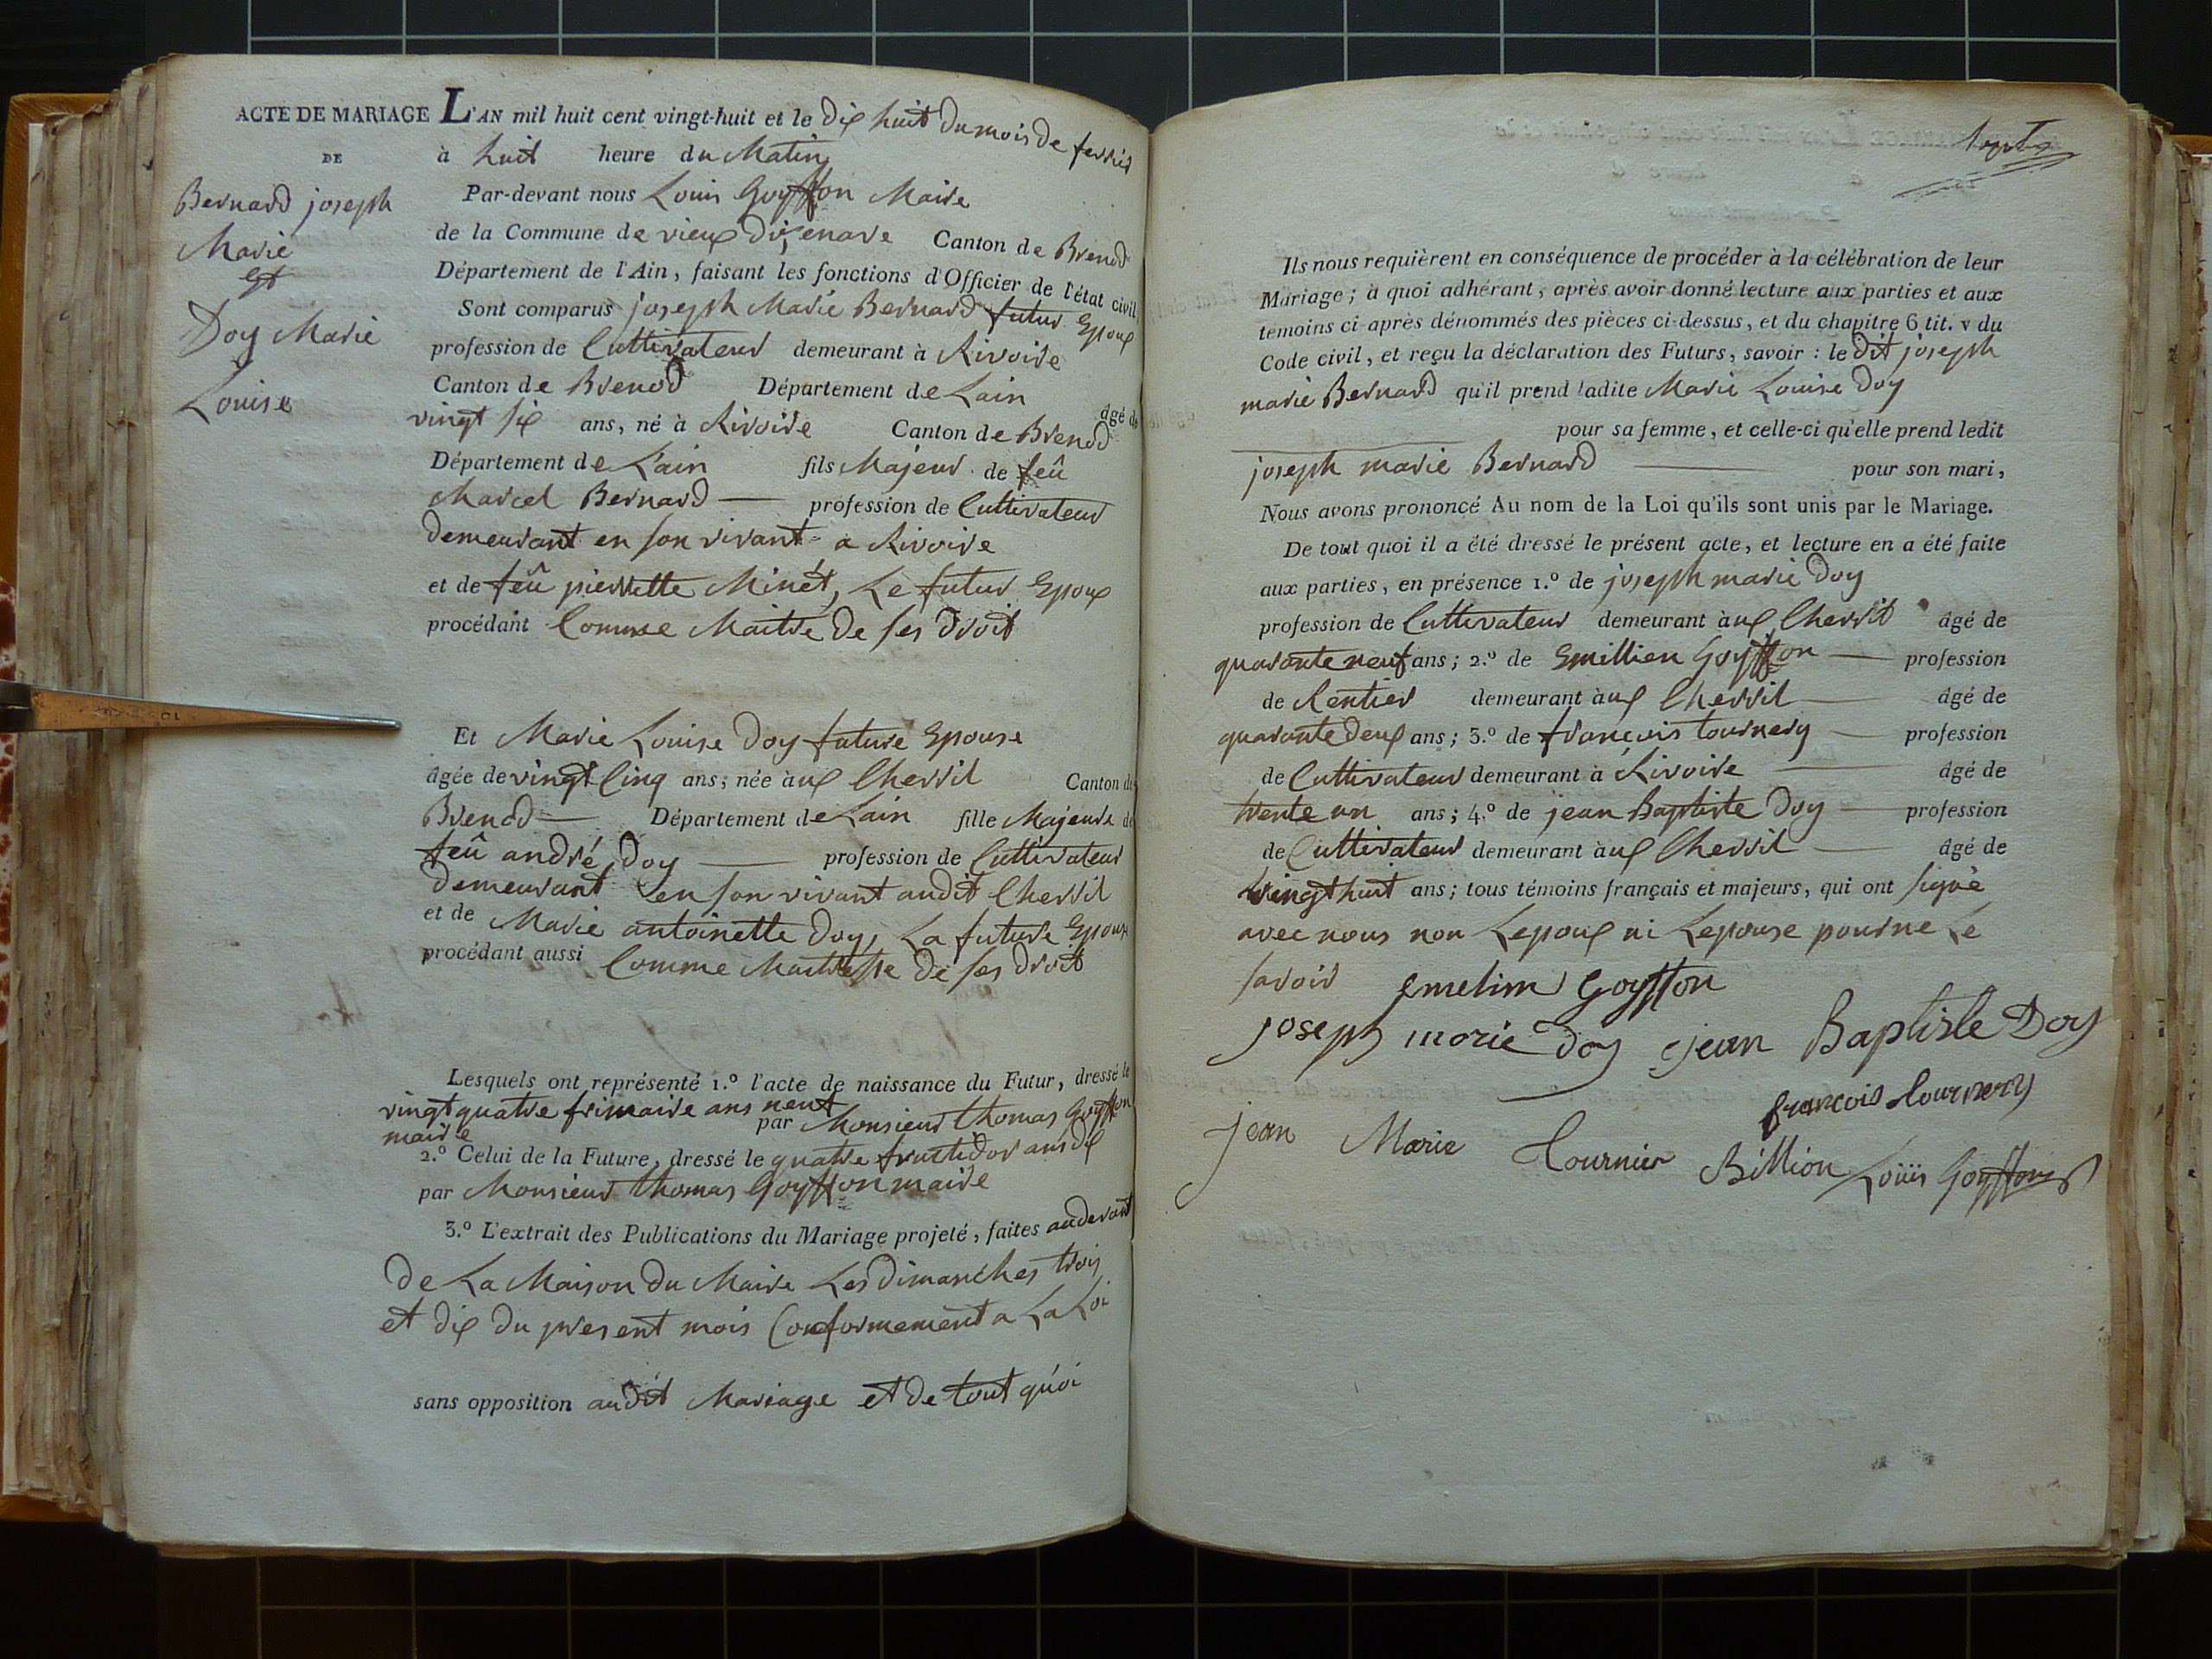 ACTE DE MARIAGE L'AN mil huit cent vingt-huit et le dix huit du mois de fevrier
DE
à huit heure du Matin
Bernard joseph
Marie
et
Doy Marie
Louise
Par-devant nous Louis Goyffon Maire
de la Commune de vieux dizenave Canton de Brenod
Département de l'Ain, faisant les fonctions d'Officier de l'état civil
Sont comparus joseph Marie Bernard futur Epoux
profession de Cultivateur demeurant à Rivoire
Canton de Brenod Département de Lain âgé de
vingt six ans, né à Rivoire Canton de Brenod
Département de Lain fils Majeur de feû
Marcel Bernard profession de Cultivateur
demeurant en son vivant a Rivoire
et de feû pierrette Minét, Le futur Epoux
procédant Comme Maitre de ses droit
Et Marie Louise Doy future Epouse
âgée de vingt Cinq ans; née à ux Cherril Canton de
Brenod Département de Lain fille Majeure de
feû andré Doy profession de Cultivateur
demeurant en son vivant audit Cherril
et de Marie antoinette Doy, La future Epouse
procédant aussi Comme Maitresse de ses droit
Lesquels ont représenté 1.º l'acte de naissance du Futur, dressé le
vingt quatre frimaire ans neuf par Monsieur thomas Goyffon
maire
2.º Celui de la Future, dressé le quatre fructidor ans dix
par Monsieur thomas Goyffon maire
3.º L'extrait des Publications du Mariage projeté, faites audevant
de La Maison du Maire Les dimanches trois
et dix du present mois Conformement a La Loi
sans opposition audit Mariage et de tout quoi
Ils nous requièrent en conséquence de procéder à la célébration de leur
Mariage; à quoi adhérant, après avoir donné lecture aux parties et aux
témoins ci-après dénommés des pièces ci-dessus, et du chapitre 6 tit. v du
Code civil, et reçu la déclaration des Futurs, savoir : le dit joseph
marie Bernard qu'il prend ladite Marie Louise Doy
pour sa femme, et celle-ci qu'elle prend ledit
joseph marie Bernard pour son mari,
Nous avons prononcé Au nom de la Loi qu'ils sont unis par le Mariage.
De tout quoi il a été dressé le présent acte, et lecture en a été faite
aux parties, en présence 1.º de joseph marie Doy
profession de Cultivateur demeurant à ux Cherrit âgé de
quarante neuf ans; 2.º de Emillien Goyffon profession
de Rentier demeurant à ux Cherril âgé de
quarante deux ans; 3.º de francois tournery profession
de Cultivateur demeurant à Rivoire âgé de
trente un ans; 4.º de jean Baptiste Doy profession
de Cultivateur demeurant à ux Cherril âgé de
vingt huit ans; tous témoins français et majeurs, qui ont signé
avec nous non Lepoux ni Lepouse pour ne Le
savoir emelim Goyffon
joseph marie doy jean Baptiste Doy
francois tournery
jean Marie Tournier Billion Loüis Goyffon